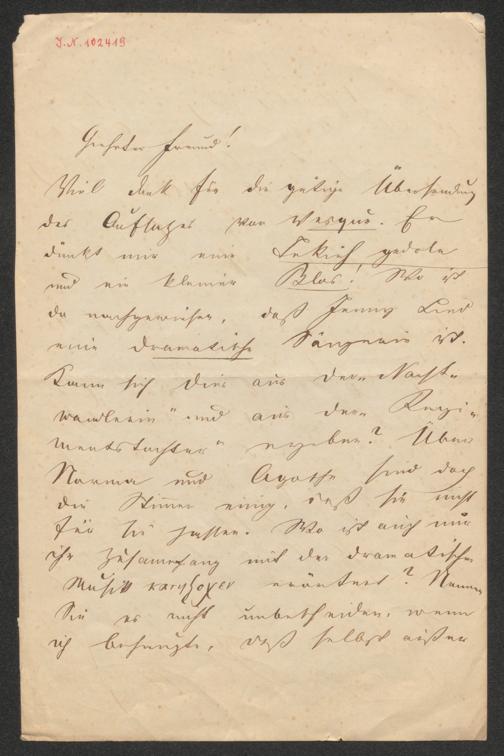 I.N. 102419
Geehrter Freund!
Viel Dank für die gütige Übersendung
des Aufsatzes von Vesque. Er
dünkt mir eine
und ein kleiner Blas! Wo ist
da nachgewiesen, daß Jenny Lind
eine dramatische Sängerin ist.
Kann sich dies aus der „Nacht-
wandlerin" und aus der „Regi-
mentstochter" ergeben? Über
Norma und Agathe sind doch
die Stimen einig, daß sie nicht
für sie passen. Wo ist auch nur
ihr Zusamenhang mit der dramatischen
Musik erörtert? Nennen
Sie es nicht unbescheiden, wenn
ich behaupte, daß selbst außer